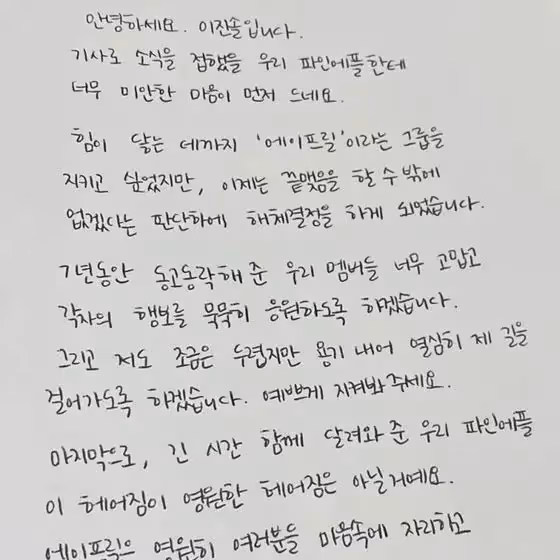 안녕하세요. 이진솔입니다.
기사로 소식을 접했을 우리 파인에플한테
너무 미안한 마음이 먼저 드네요.
힘이 닿는 데까지 '에이프릴'이라는 그룹을
지키고 싶었지만, 이제는 끝맺음을 할 수 밖에
없겠다는 판단하에 해체결정을 하게 되었습니다.
7년동안 동고동락해 준 우리 멤버들 너무 고맙고
각자의 행보를 묵묵히 응원하도록 하겠습니다.
그리고 저도 조금은 두렵지만 용기 내어 열심히 제 길을
걸어가도록 하겠습니다. 예쁘게 지켜봐주세요.
마지막으로, 긴 시간 함께 달려와 준 우리 파인에플
이 헤어짐이 영원한 헤어짐은 아닐거예요.
에이프릴은 영원히 여러분들 마음속에 자리하고